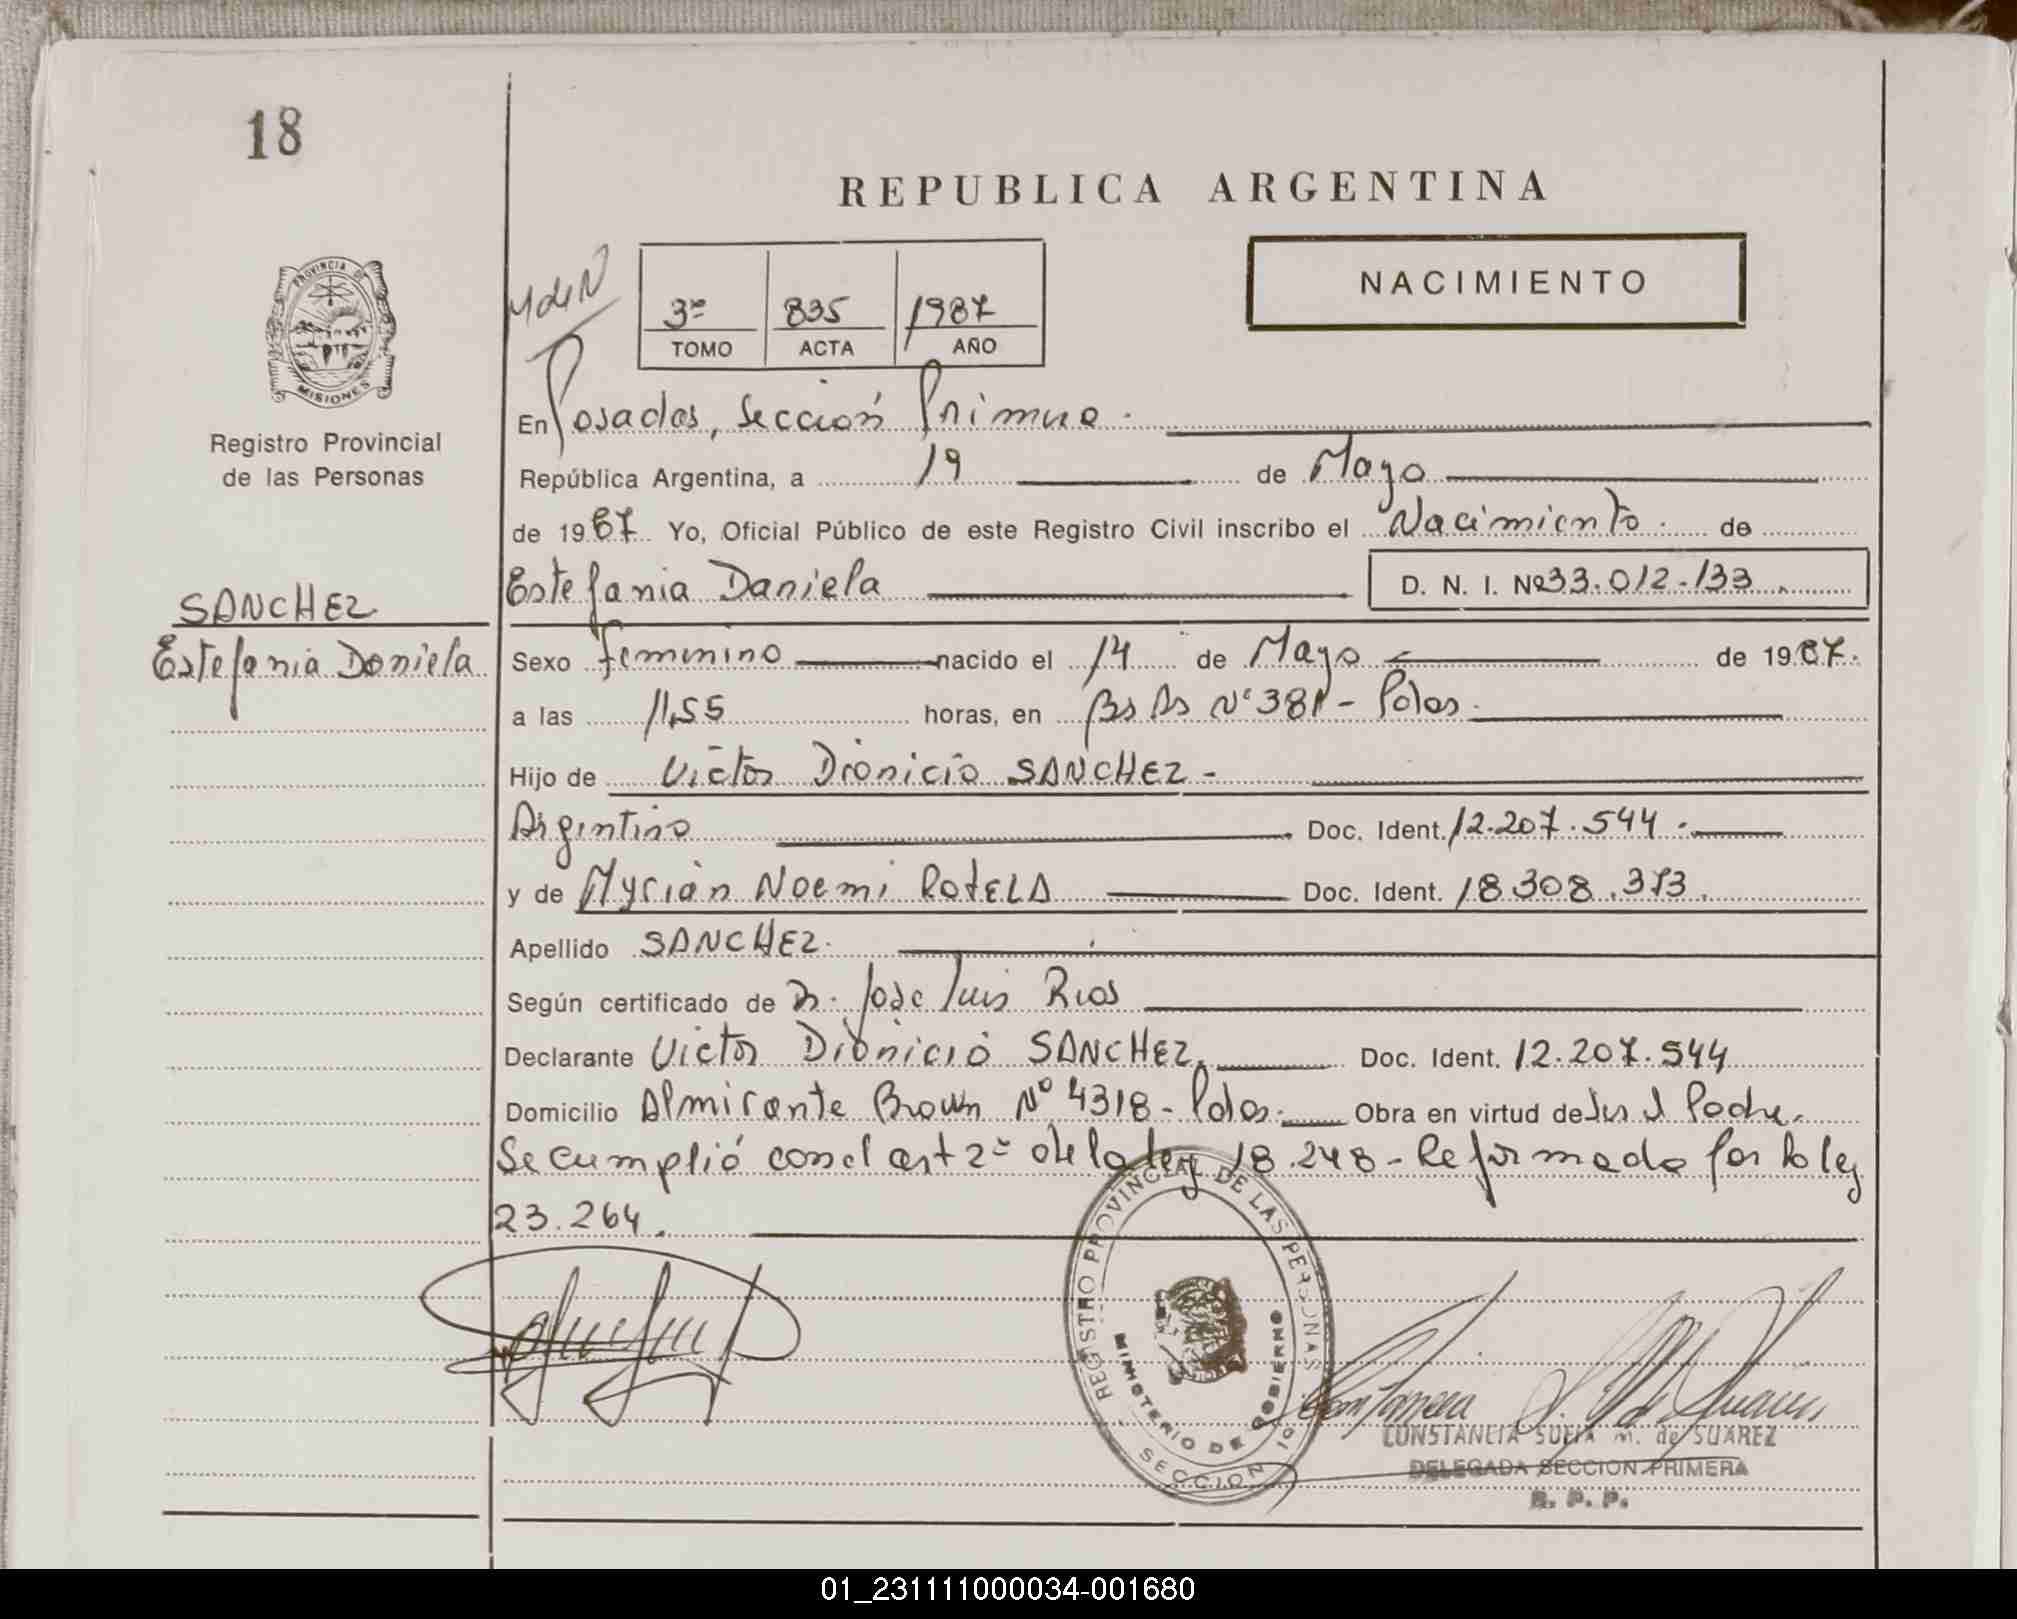 18
REPUBLICA ARGENTINA
NACIMIENTO
3º 835 1987
TOMO ACTA AÑO
PROVINCIA DE MISIONES
Registro Provincial
de las Personas
En Posadas, Sección Primera.
República Argentina, a 19 de Mayo
de 1987 Yo, Oficial Público de este Registro Civil inscribo el Nacimiento de
Estefania Daniela D. N. I. Nº 33.012.133
SANCHEZ
Estefania Daniela
Sexo femenino nacido el 14 de Mayo de 1987.
a las 11,55 horas, en Bs As Nº 381 - Pdas.
Hijo de Victor Dionicio SANCHEZ -
Argentino Doc. Ident. 12.207.544.
y de Myrian Noemi ROTELA Doc. Ident. 18.308.373.
Apellido SANCHEZ.
Según certificado de Dr. Jose Luis Rios
Declarante Victor Dionicio SANCHEZ. Doc. Ident. 12.207.544
Domicilio Almirante Brown Nº 4318 - Pdas. Obra en virtud de Padre.
Se cumplió con el art 2º de la ley 18.248 - Reformada por la ley
23.264.
REGISTRO PROVINCIAL DE LAS PERSONAS
MINISTERIO DE GOBIERNO
SECCION 1º
CONSTANCIA SOFIA M. de SUAREZ
DELEGADA SECCION PRIMERA
R. P. P.
01_231111000034-001680